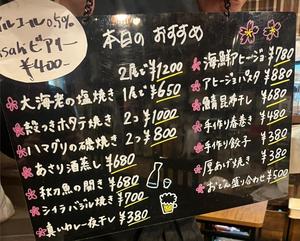 アルコール0.5%
asahiビアリー
¥400-
本日の おすすめ
2尾で ¥1200
大海老の塩焼き 1尾で ¥650
殻つきホタテ焼き 2つ ¥1000
ハマグリの磯焼き 2つ ¥800
あさり酒蒸し ¥680
秋刀魚の開き ¥680
シイラバジル焼き ¥700
真いわし一夜干し ¥380
海鮮アヒージョ ¥780
アヒージョパスタ ¥880
鯖昆布干し ¥680
手作り春巻 ¥480
手作り餃子 ¥380
厚あげ焼き ¥380
おでん盛り合わせ ¥500